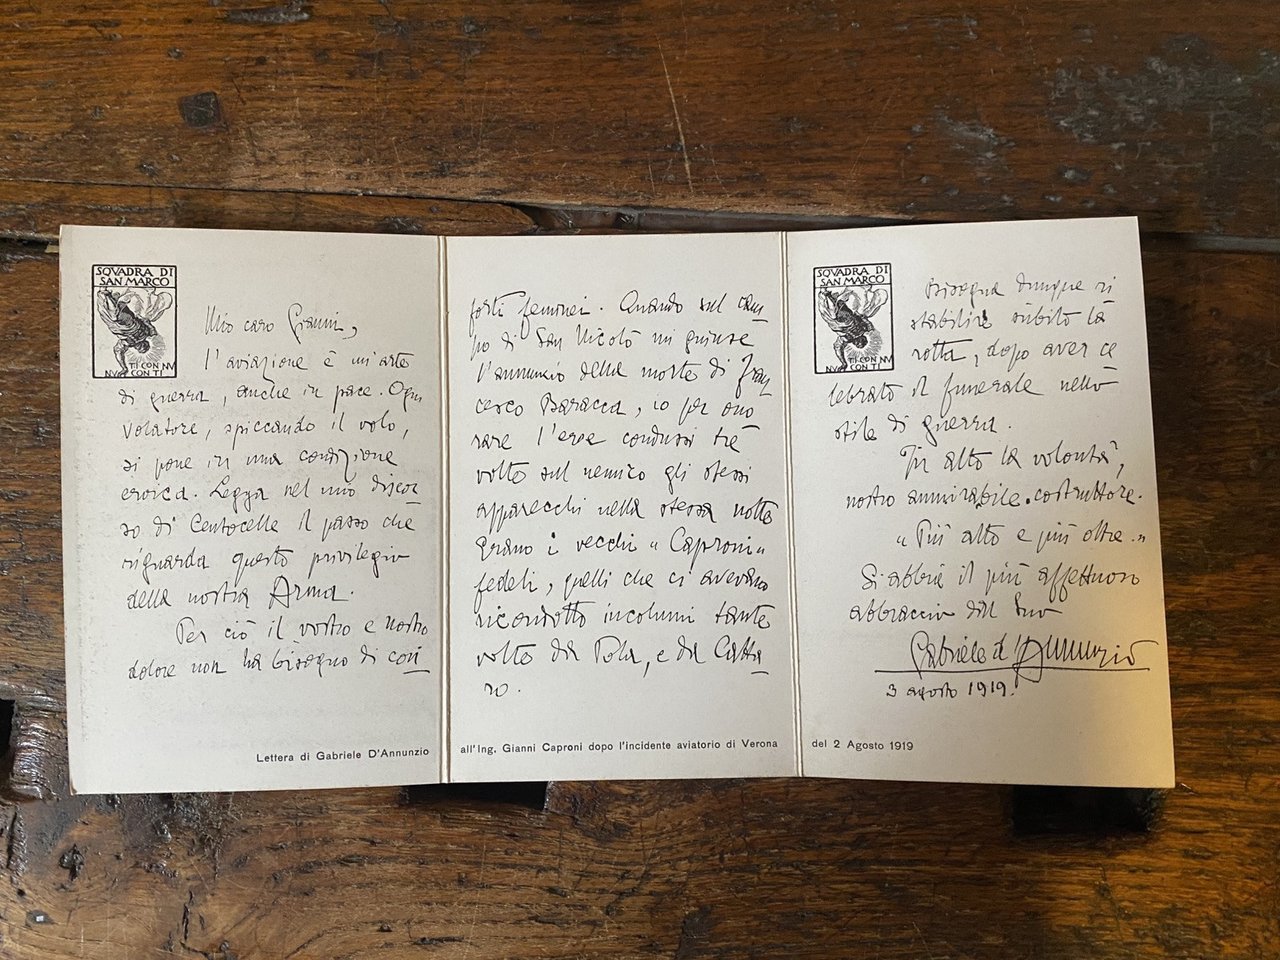 SQVADRA DI
SAN MARCO
TI CON NV
NV CON TI
Mio caro Gianni,
l'aviazione è un'arte
di guerra, anche in pace. Ogni
volatore, spiccando il volo,
si pone in una condizione
eroica. Legga nel mio discor
so di Centocelle il passo che
riguarda questo privilegio
della nostra Arma.
Per ciò il vostro e nostro
dolore non ha bisogno di con
Lettera di Gabriele D'Annunzio
forti feminei. Quando sul cam
po di San Nicolò mi giunse
l'annunzio della morte di Fran
cesco Baracca, io per ono
rare l'eroe condussi tre
volte sul nemico gli stessi
apparecchi nella stessa notte
Erano i vecchi "Caproni"
fedeli, quelli che ci avevano
ricondotto incolumi tante
volte da Pola, e da Catta
ro.
all'Ing. Gianni Caproni dopo l'incidente aviatorio di Verona
SQVADRA DI
SAN MARCO
TI CON NV
NV CON TI
Bisogna dunque ri
stabilire sùbito la
rotta, dopo aver ce
lebrato il funerale nello
stile di guerra.
In alto la volontà,
nostro ammirabile costruttore.
"Più alto e più oltre."
Si abbia il più affettuoso
abbraccio dal suo
Gabriele d'Annunzio
3 agosto 1919.
del 2 Agosto 1919